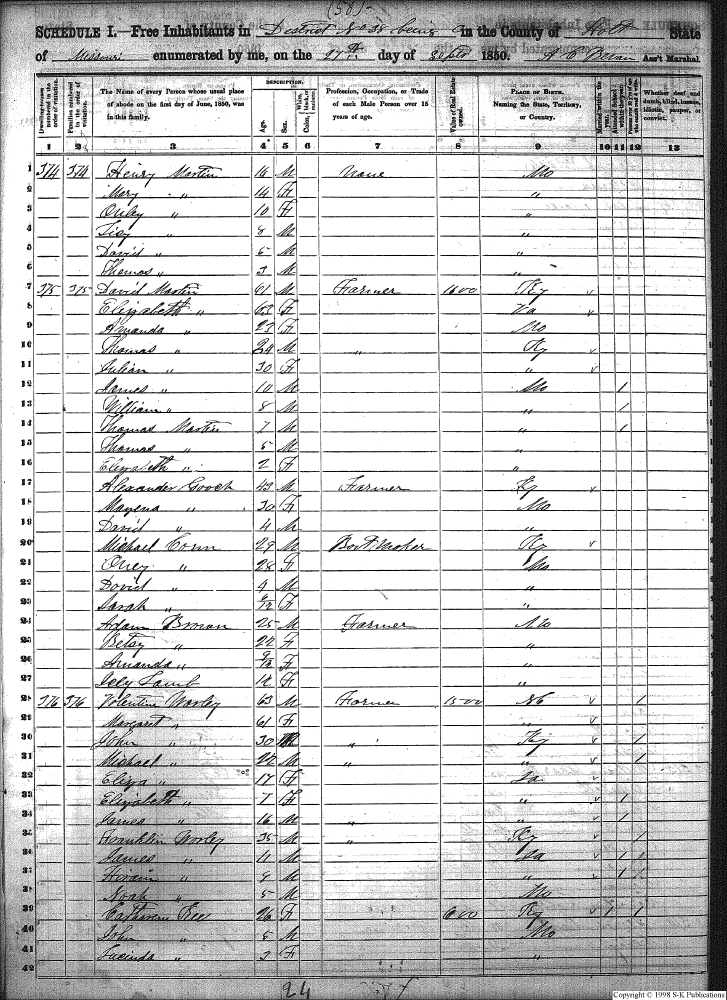 (58)
SCHEDULE I.—Free Inhabitants in District No 38 being a in the County of Holt State
of Missouri enumerated by me, on the 27th day of Sept 1850. Ass't Marshal
DESCRIPTION.
Dwelling-houses numbered in the order of visitation. Families numbered in the order of visitation. The Name of every Person whose usual place of abode on the first day of June, 1850, was in this family. Age. Sex. Color, White, black, or mulatto. Profession, Occupation, or Trade of each Male Person over 15 years of age. Value of Real Estate owned. PLACE OF BIRTH. Naming the State, Territory, or Country. Married within the year. Whether deaf and dumb, blind, insane, idiotic, pauper, or convict.
1 2 3 4 5 6 7 8 9 10 11 12 13
1 374 374 Henry Martin M None Mo
2 Mary " 14 F "
3 " 10 F "
4 " 8 M "
5 David " 5 M "
6 Thomas " 3 M "
7 375 375 David Martin 61 M Farmer 1600 Ky
8 Elizabeth " 63 F Va
9 Amanda " 23 F Mo
10 Thomas " 24 M " Ky
11 Julian " 30 F "
12 James " 10 M Mo /
13 William " 8 M " /
14 Thomas Martin 7 M " /
15 Thomas " 5 M "
16 Elizabeth " 2 F "
17 Alexander Gooch 43 M Farmer Ky
18 " 30 F Mo
19 David " 4 M "
20 Michael 29 M Boot Maker Ky
21 " 28 F Mo
22 David " 4 M "
23 Sarah " F "
24 Adam Brown 25 M Farmer Mo
25 Betsy " 22 F "
26 Amanda " F "
27 Lamb F "
28 376 376 Valentine Worley 63 M Farmer 1500 /
29 Margaret " 61 F "
30 John " 30 M " Ky /
31 Michael " 22 M " " /
32 Eliza " 17 F
33 Elizabeth " 7 F " /
34 James " 16 M " " /
35 Franklin Worley 35 M " Ky /
36 James " 11 M / /
37 Hiram " 9 M " /
38 Noah " 5 M Mo
39 Catharine 26 F 600 Ky / /
40 John " 5 M Mo
41 Lucinda " 3 F "
42
24
Copyright © 1998 S-K Publications